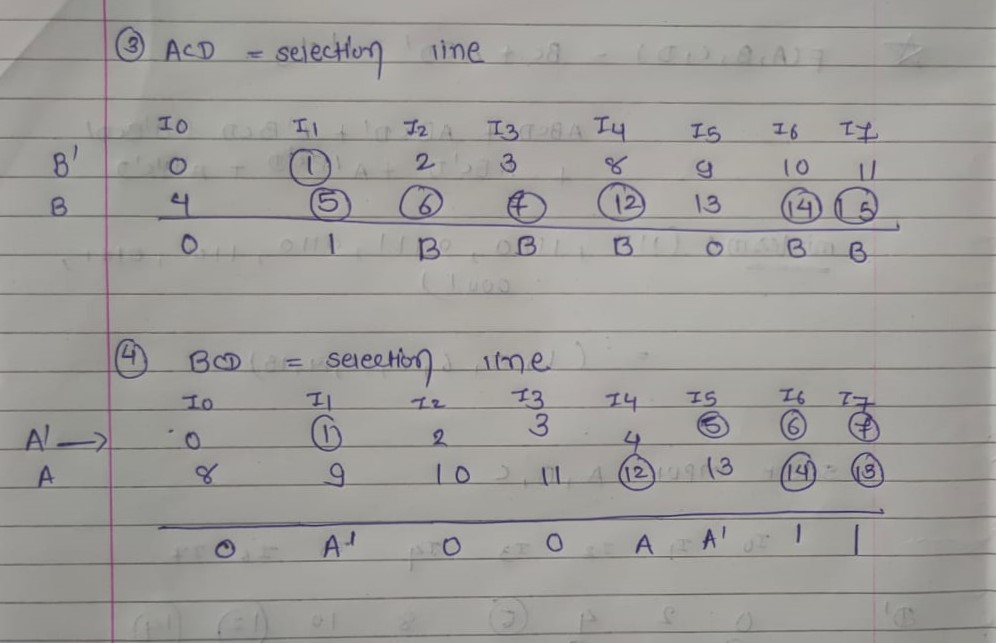 ③ ACD = selection line
I0 I1 I2 I3 I4 I5 I6 I7
B' 0 ① 2 3 8 9 10 11
B 4 ⑤ ⑥ ⑦ ⑫ 13 ⑭ ⑮
0 1 B B B 0 B B
④ BCD = selection line
I0 I1 I2 I3 I4 I5 I6 I7
A' → 0 ① 2 3 4 ⑤ ⑥ ⑦
A 8 9 10 11 ⑫ 13 ⑭ ⑬
0 A' 0 0 A A' 1 1